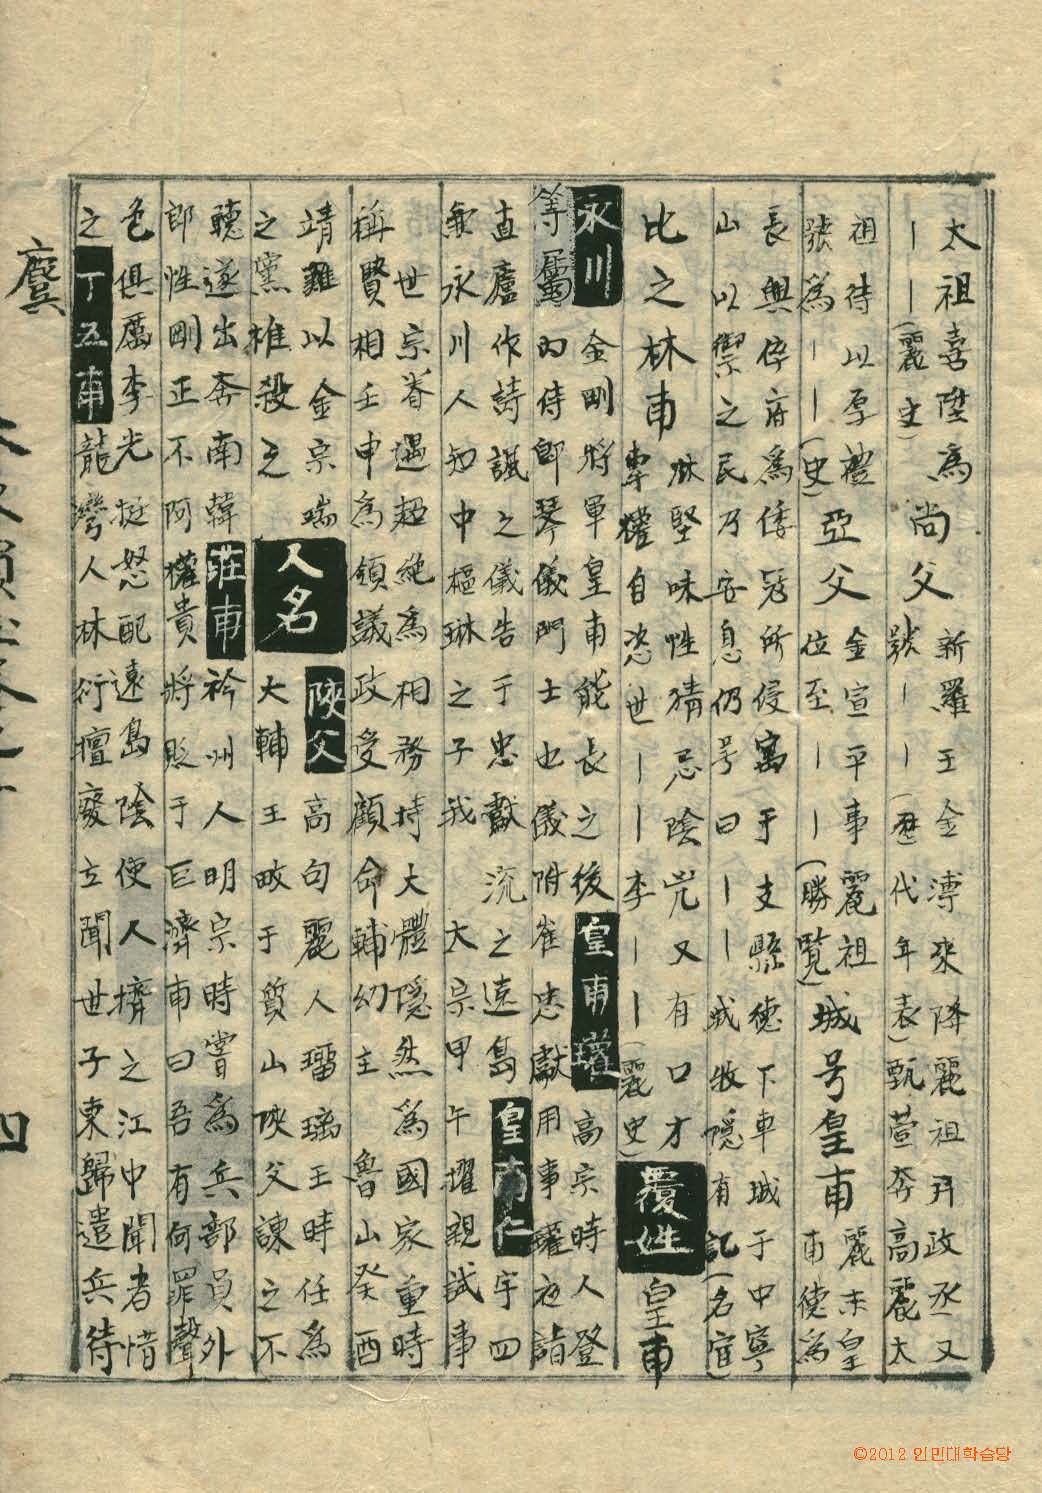 太祖喜陞爲尙父 新羅王金溥來降麗祖升政丞又
丨丨(麗史) 號丨丨(歷代年表)甄萱奔高麗太
祖待以厚禮 亞父 金宣平事麗祖 城号皇甫 麗末皇
號爲丨丨(史) 位至丨丨(勝覽) 甫德爲
長興倅府爲倭冦所侵寓于支縣德下車城于中寧
山以禦之民乃安息仍号曰丨丨戎牧隱有記(名宦)
比之林甫 林堅味性猜忌陰兇又有口才 覆姓 皇甫
專權自恣世丨丨李丨丨(麗史)
永川 金剛將軍皇甫能長之後 皇甫瓘 高宗時人登
等屬 內侍郎琴儀門士也儀附崔忠獻用事瓘夜詣
直廬作詩譏之儀告于忠獻流之遠島 皇甫仁 宇四
兼永川人知中樞琳之子我太宗甲午擢親試事
世宗眷遇超絶爲相務持大體隱然爲國家重時
稱賢相壬申爲領議政受顧命輔幼主魯山癸酉
靖難以金宗瑞 人名 陜父 高句麗人瑠璃王時任爲
之黨椎殺之 大輔王畋于質山陜父諫之不
聽遂出奔南韓 莊甫 衿州人明宗時嘗爲兵部員外
郎性剛正不阿權貴將貶于巨濟甫曰吾有何罪聲
色俱厲李光挺怒配遠島陰使人擠之江中聞者惜
之 丁五甫 龍灣人林衍擅廢立聞世子東歸遣兵待
四
©2012 인민대학습당